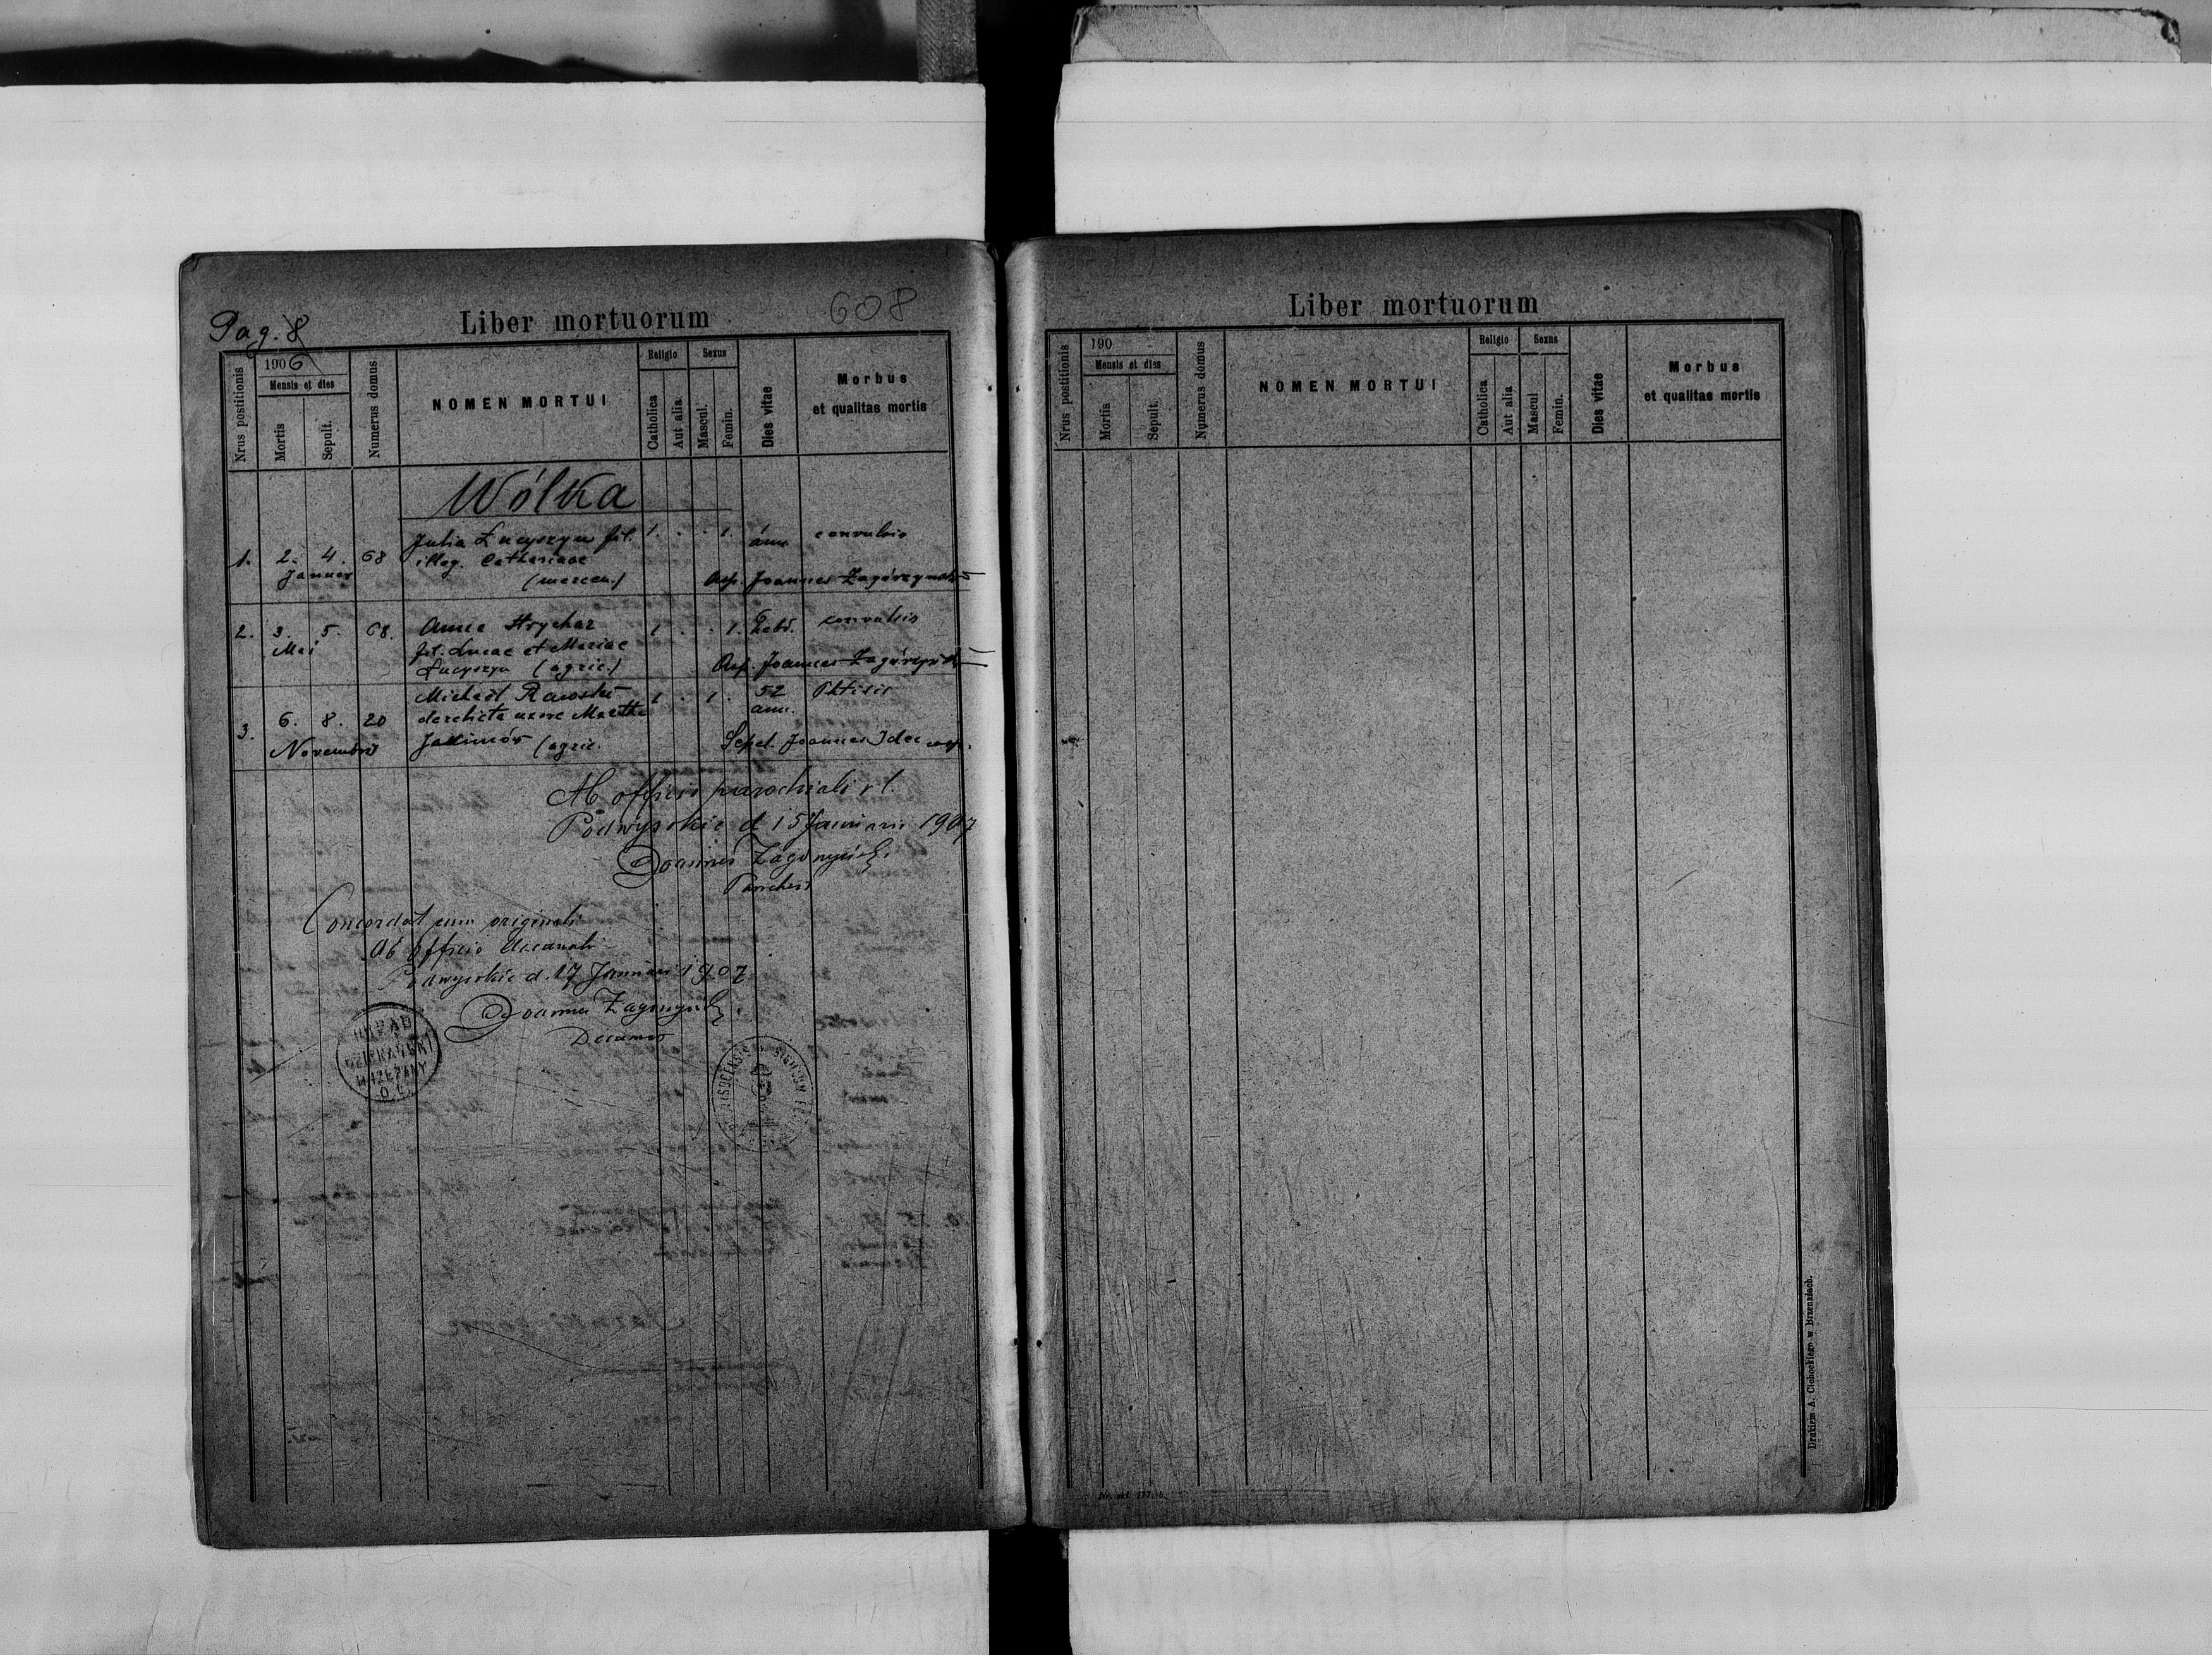 Pag. 8
Liber mortuorum
608
Nrus postitionis
1906
Mensis et dies
Mortis
Sepult.
Numerus domus
NOMEN MORTUI
Religio
Catholica
Aut alia.
Sexus
Mascul.
Femin.
Dies vitae
Morbus
et qualitas mortis
Wólka
1. 2. 4. 68 Julia Łucyszyn fil. 1. . . 1. convulsio
Januar illeg. Catharinae
(mercen.) Joannes Zagórzyński
2. 3. 5. 68. Anna Hrychar 1 . . 1. convulsio
Mai fil. Lucae et Mariae
Łucyszyn (agric.) Joannes Zagórzyński
3. 6. 8. 20 Michael Rawski 1 . 1 . 52 ann. Phtisis
Novembris derelicta uxore Martha
Jakimów (agric. Sepel. Joannes Idec
Ab officio parochiali r. l.
Podwysokie d 15 Januarii 1907
Joannes Zagórzyński
Parochus
Concordat cum originali
Ab officio decanali
Podwysokie d. 17 Januarii 1907
Joannes Zagórzyński
Decanus
URZĄD
DZIEKAŃSKI
BRZEŻANY
O. Ł.
Liber mortuorum
Nrus postitionis
190
Mensis et dies
Mortis
Sepult.
Numerus domus
NOMEN MORTUI
Religio
Catholica
Aut alia
Sexus
Mascul
Femin.
Dies vitae
Morbus
et qualitas mortis
Drukiem A. Cichockiego w Brzeżanach.